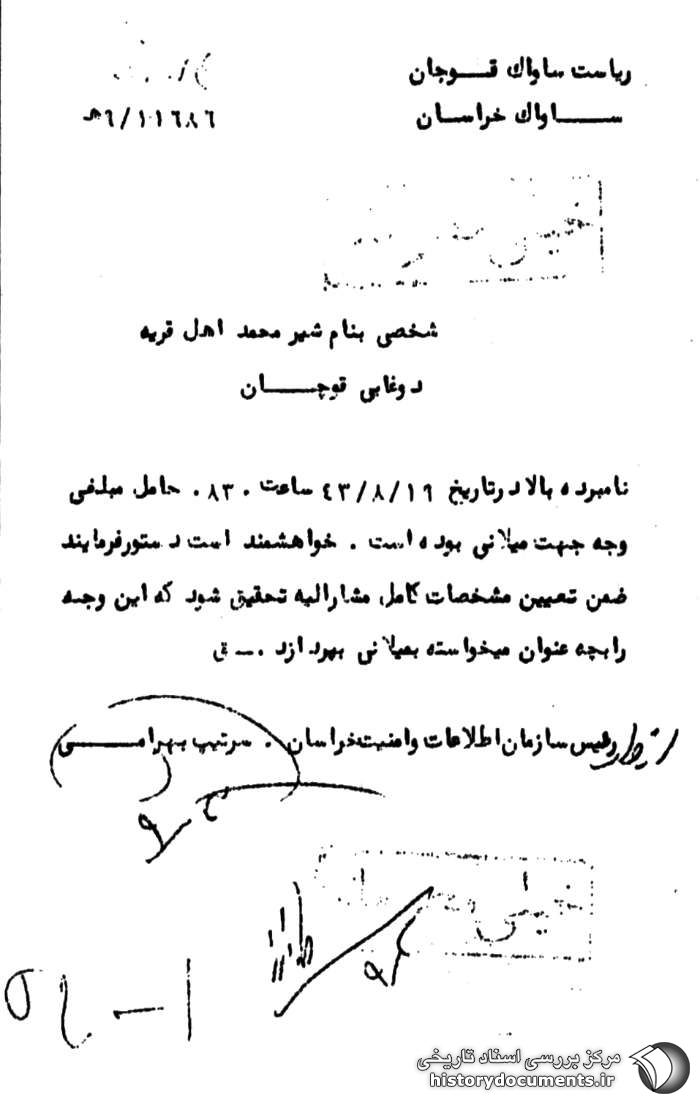 ریاست ساواک قوچان
ساواک خراسان
۹/۱۰۱۶۸۶ﻫ
خیلی محرمانه
شخصی بنام شیر محمد اهل قریه
دوغایی قوچان
نامبرده بالا در تاریخ ۴۳/۸/۱۹ ساعت ۰۸۳۰ حامل مبلغی
وجه جهت میلانی بوده است . خواهشمند است دستور فرمایند
ضمن تعیین مشخصات کامل مشارالیه تحقیق شود که این وجه
را بچه عنوان میخواسته بمیلانی بپردازد .ـ ق
رئیس سازمان اطلاعات و امنیت خراسان . سرتیپ بهرامی
خیلی محرمانه
مرکز بررسی اسناد تاریخی
historydocuments.ir